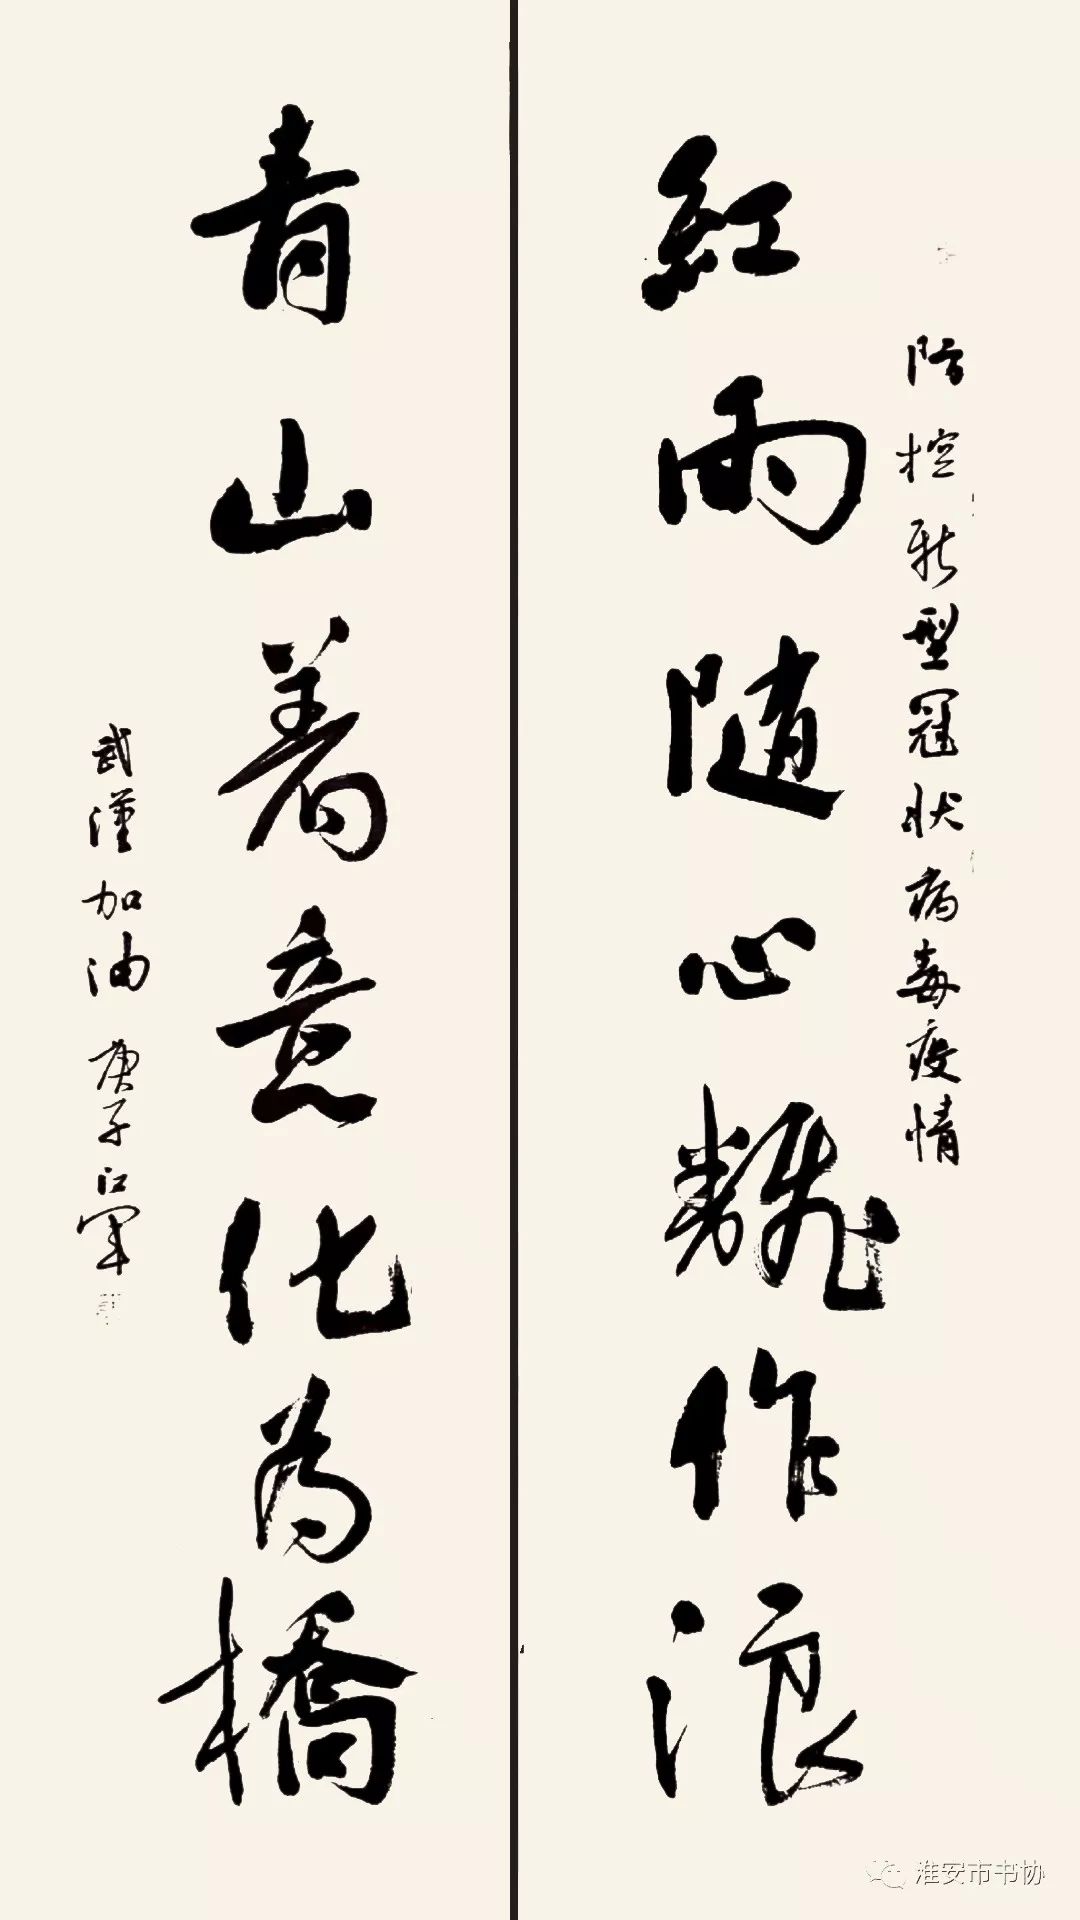 防控新型冠状病毒疫情
紅雨随心飜作浪
青山着意化為橋
武漢加油 庚子江軍
淮安市书协